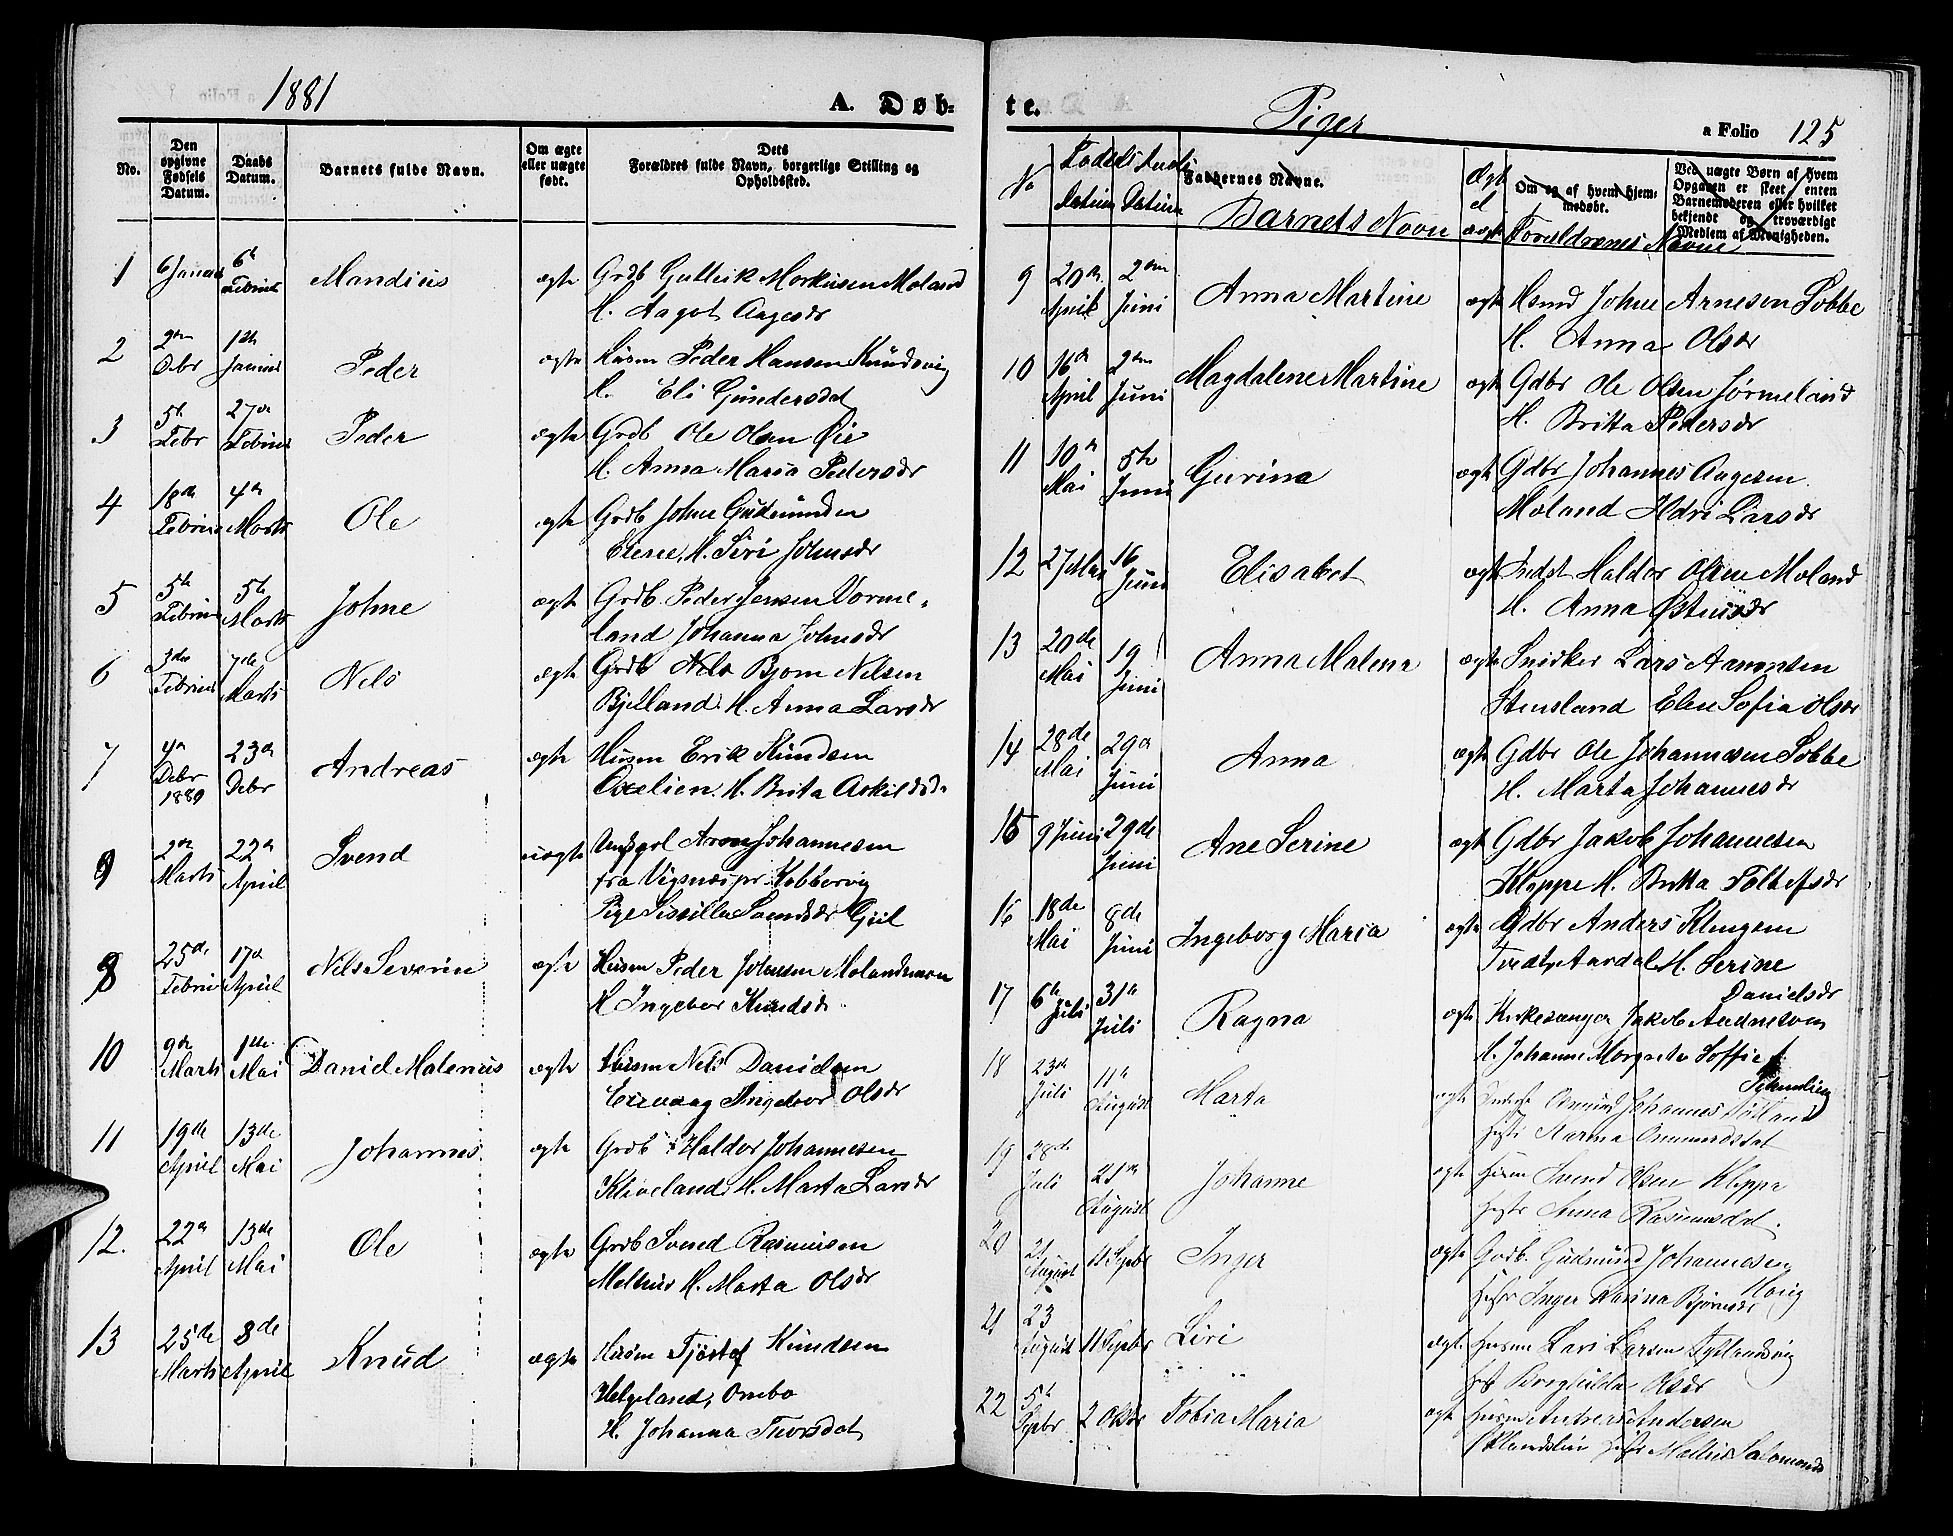 1881
A. Døb-
No.
Den opgivne Fødsels Datum.
Daabs Datum.
Barnets fulde Navn.
Om ægte eller uægte født.
Dets Forældres fulde Navn, borgerlige Stilling og Opholdssted.
1 6 Januar 6te Februar Mandius ægte Grdb Guttick Markusen Moland
H. Aagot Aagesdr
2 2den Debr 1ste Januar Peder ægte Husm Peder Hansen Knudsvig
H. Eli Gundersdat
3 5te Febr 27de Februar Peder ægte Grdb Ole Olsen Øie
H. Anna Maria Pedersdr
4 18de Februar 4de Marts Ole ægte Grdb Johne Gudmunden
H. Siri Johnsdr
5 5te Februar 5te Marts Johne ægte Grdb. Peder Jensen Vorme-
land Johanna Johnsdr
6 3die Februar 7de Marts Nels ægte Grdb Nels Bjorn Nelsen
Bjelland. H. Anna Larsdr
7 4de Debr 1880 23de Debr Andreas ægte Husm Erik Knudsen
H. Brita Askilsd.
9 2den Marts 22de April Svend uægte Ungkrl Aron Johannesen
fra Vigsnæs pr. Kobbervig
Pige Sissilla Samdsdr Gjil
8 25de Februar 17de April Nels Severin ægte Husm Peder Johnsen Molandsmoen
H Ingebor Knudsdr
10 9de Marts 1ste Mai Daniel Malenius ægte Husm Nels Danielsen
Ingebor Olsdr
11 19de April 13de Mai Johannes ægte Grdb Haldor Johannesen
Kliveland. H. Marta Larsdr
12. 22de April 13de Mai Ole ægte Grdb Svend Rasmusen
Melhus H. Marta Olsdr
13 25de Marts 8de April Knud ægte Husm Tjøstof Knudsen
Helgeland, Ombo
H. Johanna Thorsdat
te.
Piger
a Folio 125
No
Fødels Datum
Daabs Datum
Faddernes Navne.
Barnets Navn
Ægt el uægt
Om og af hvem hjemmedøbt.
Forældrenes Navne
Ved uægte Børn af hvem Opgaven er skeet enten Barnemoderen eller hvilket bekjendt og troværdigt Medlem af Menigheden.
9 20de April 2den Juni Anna Martine ægte Husmd Johne Arnesen Tobbe
H. Anna Olsdr
10 16de April 2den Juni Magdalene Martine ægte Gdbr Ole Olsen Jørmeland
H. Britta Pedersdr
11 10de Mai 5te Juni Gurina ægte Gdbr Johannes Aagesen
Moland Ildri Larsdr
12 27 Mai 16 Juni Elisabet ægte Indst Haldor Olsen Moland
H. Anna Østensdr
13 20de Mai 19 Juni Anna Malena ægte Snirker Lars Aamonsen
Stensland Elen Sofia Olsdr
14 28de Mai 29de Juni Anna ægte Gdbr Ole Johannesen Tobbe
H. Marta Johannesdr
15 9 Juni 29de Juni Ane Serine ægte Gdbr Jakob Johannesen
Kleppe H. Britta Tollefsdr
16 18de Mai 8de Juni Ingeborg Maria ægte Gdbr Anders Klungsen
Aardal H. Serine
Danielsdr
17 6te Juli 31te Juli Ragna ægte Kirkesanger Jakob Andneson
H. Johanne Margreta Soffie f.
18 23de Juli 11te August Marta ægte Indst Omund Johannes
Hustr Karina Omundsdat
19 28de Juli 21de August Johanne ægte Husm Svend Olsen Kleppe
Hustr Anna Rasmusdat.
20 21 August 11 Septbr Inger ægte Grdb. Gudmund Johannesen
Haug
Hustr Inger Karina Bjørnsdr
21 23 August 11 Septbr Siri ægte Husm Lars Larsen
Borghilda Olsdr
22 5te Septbr 2 Oktbr Tobia Maria ægte Husm Anders Andersen
Hustr Mallene Salomonsd